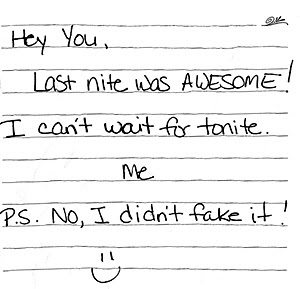 Hey You,
Last nite was AWESOME!
I can't wait for tonite.
Me
P.S. No, I didn't fake it!